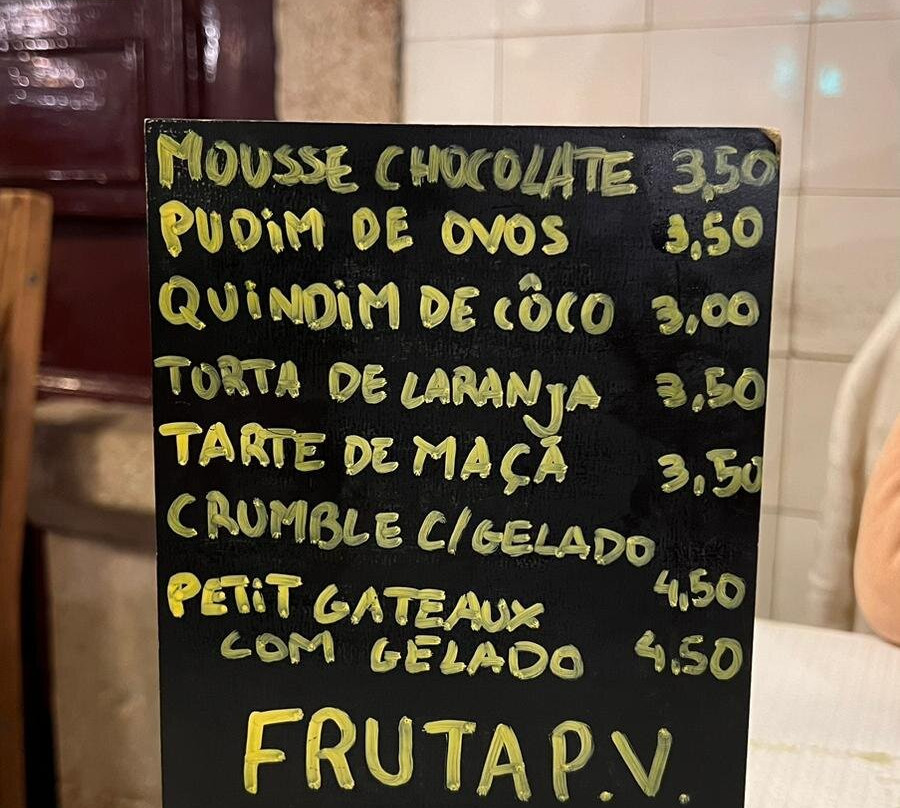 MOUSSE CHOCOLATE 3,50
PUDiM DE OVOS 3,50
QUiNDiM DE CÔCO 3,00
TORTA DE LARANjA 3,50
TARTE DE MAÇÃ 3,50
CRUMBLE C/GELADO
4,50
PETiT GATEAUX
COM GELADO 4,50
FRUTA P.V.